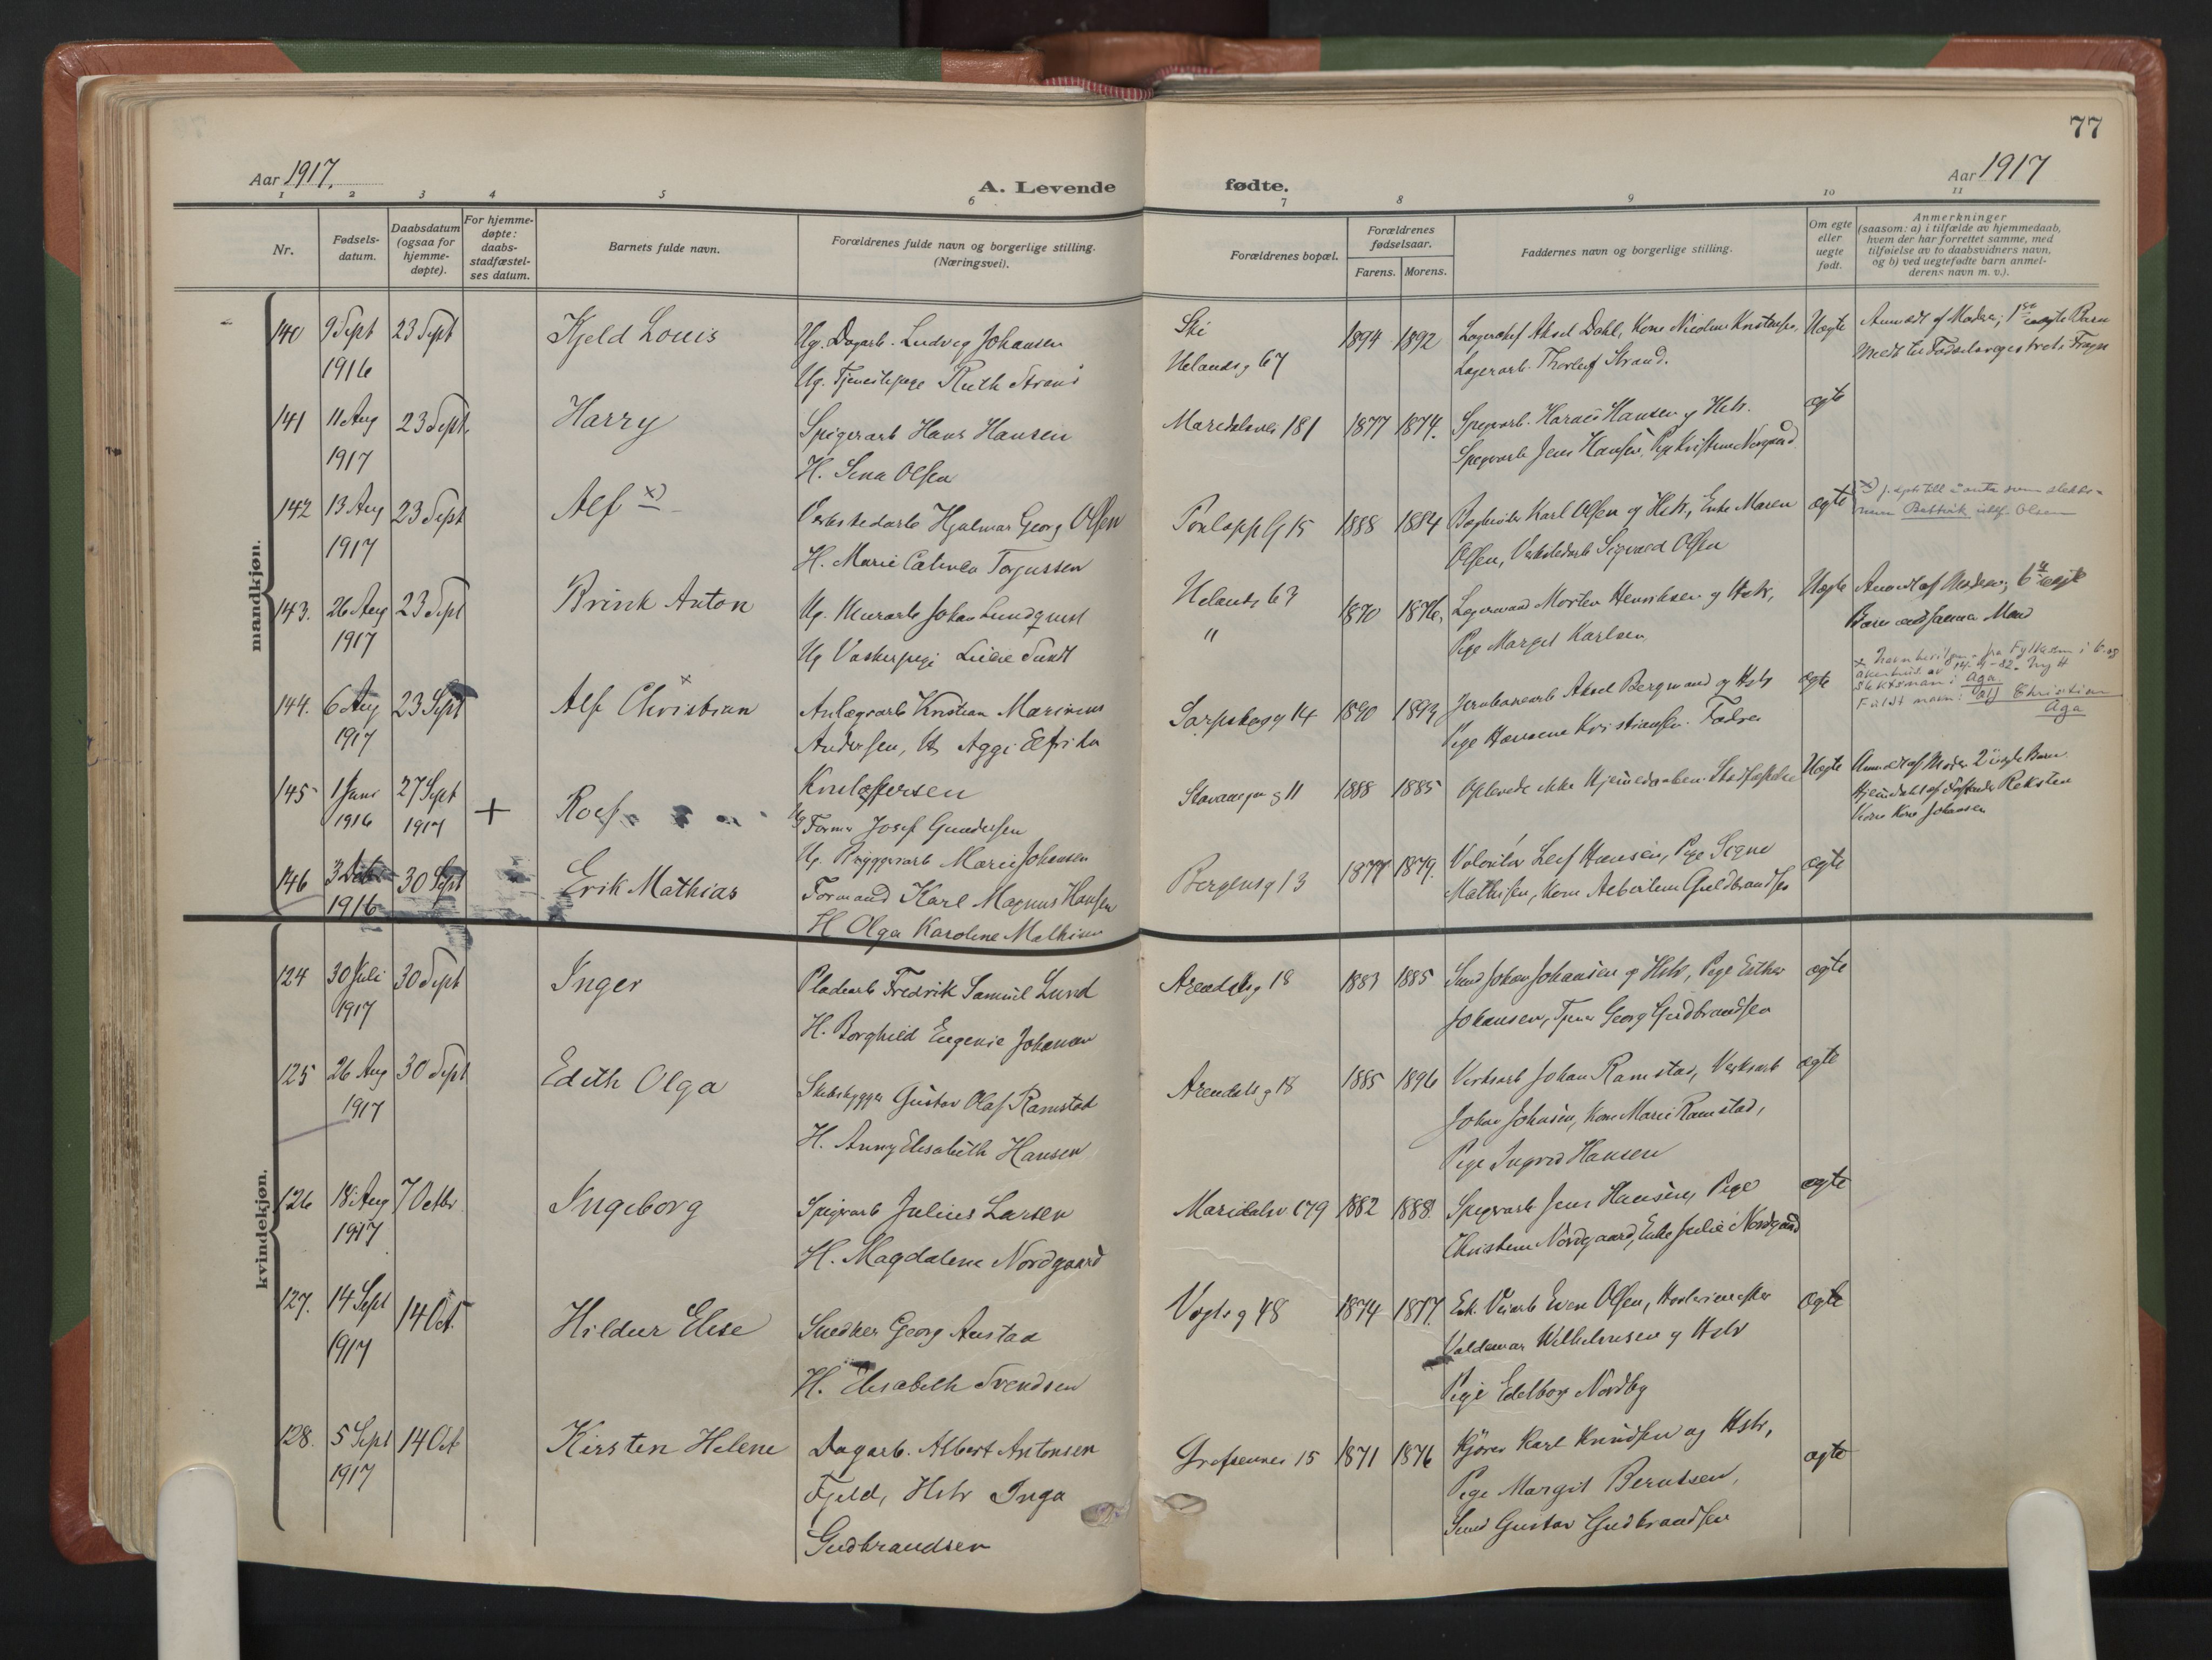 77
Aar 1917.
A. Levende
fødte.
Aar 1917
1 2 3 4 5 6 7 8 9 10 11
Nr.
Fødsels-
datum.
Daabsdatum
(ogsaa for
hjemme-
døpte).
For hjemme-
døpte:
daabs-
stadfæstel-
ses datum.
Barnets fulde navn.
Forældrenes fulde navn og borgerlige stilling.
(Næringsvei).
Forældrenes bopæl.
Forældrenes
fødselsaar.
Farens. Morens.
Faddernes navn og borgerlige stilling.
Om egte
eller
uegte
født.
Anmerkninger
(saasom: a) i tilfælde av hjemmedaab,
hvem der har forrettet samme, med
tilføielse av to daabsvidners navn,
og b) ved uegtefødte barn anmel-
derens navn m. v.).
mandkjøn.
140 9 Sept 23 Sept Kjeld Louis Ug. Dagarb. Ludvig Johansen Ski 1894 1892 Aksel Dahl, Kone Uegte
1916 Ug. Ruth Strand Uelandsg 67 Lagerarb. Thorleif Strand.
141 11 Aug 23 Sept. Harry Spigerarb Hans Hansen Maridalsvei 181 1877 1874. Hansen og Hstr. ægte
1917 H. Olsen Jens Hansen, Pige
142 13 Aug 23 Sept Alf x) Verkstedarb Hjalmar Georg Olsen 15 1888 1884 Karl Olsen og Hstr, Enke Maren ægte x)
1917 H. Marie Torjussen Olsen, Verkstedarb Sigvard Olsen Olsen
143. 26 Aug 23 Sept Brink Anton Ug. Murarb Johan Lundqvist Uelandsg 63 1870 1876, Morten Henriksen og Hstr, Uegte Anmeldt af Moderen; 6te uegte
1917 Ug Sundt " Pige Margit Karlsen Barn med samme Mand
144. 6 Aug 23 Sept Alf Christian x Anlægsarb Kristian Marinius Sarpsborgg 14 1890 1893 Jernbanearb Aksel Bergmand og Hstr ægte slektsnavn: Aga
1917 Andersen, H. Aggi Elfrida Pige Kristiansen. Fadren Fuldt navn: Alf Christian
Aga
Kristoffersen
145 1 Juni 27 Sept + Rolf Ug Former Josef Gundersen Stavangergg 11 1888 1885 Oplevede ikke Hjemmedaabens Stadfæstelse Uegte Anmeldt af Moder 2 uegte Barn
1916 1917 Ug. Marie Johansen Reksten
Kone Johansen
146 3 30 Sept Erik Mathias Formand Karl Magnus Hansen Bergensg 13 1877 1879. Volontør Leif Hansen, Pige Signe ægte
1916 H Olga Karoline Mathisen Mathisen, Kone Guldbrandsen
kvindekjøn.
124 30 Juli 30 Sept Inger Pladearb Fredrik Samuel Lund Arendalsg 18 1883 1885 Smed Johan Johansen og Hstr, Pige Esther ægte
1917 H. Borghild Eugenie Johansen Johansen, Georg Gudbrandsen
125 26 Aug 30 Sept Edith Olga Gustav Olaf Ramstad Arendalsg 18 1885 1896 Verksarb Johan Ramstad, Verksarb ægte
1917 H. Anny Elisabeth Hansen Johan Johnsen, Kone Marie Ramstad,
Pige Ingrid Hansen
126 18 Aug 7 Octbr Ingeborg Spigerarb Julius Larsen Maridalsv 179 1882 1888. Spigerarb Jens Hansen, Pige ægte
1917 H. Magdalena Nordgaard Nordgaard, Enke Julie Nordgaard
127. 14 Sept 14 Oct. Hildur Elise Snedker Georg Austad Vogtsg 48 1874 1877. Olsen, ægte
1917 H. Elisabeth Svendsen Valdemar Wilhelmsen og Hstr
Pige Edelborg Nordby
128. 5 Sept 14 Oct Kirsten Helene Dagarb. Albert Antonsen Grefsenvei 15 1871 1876 Kjører Karl Knudsen og Hstr, ægte
1917 Fjeld, Hstr Inga Pige Margit Berntsen,
Gudbrandsen Smed Gustav Gudbrandsen